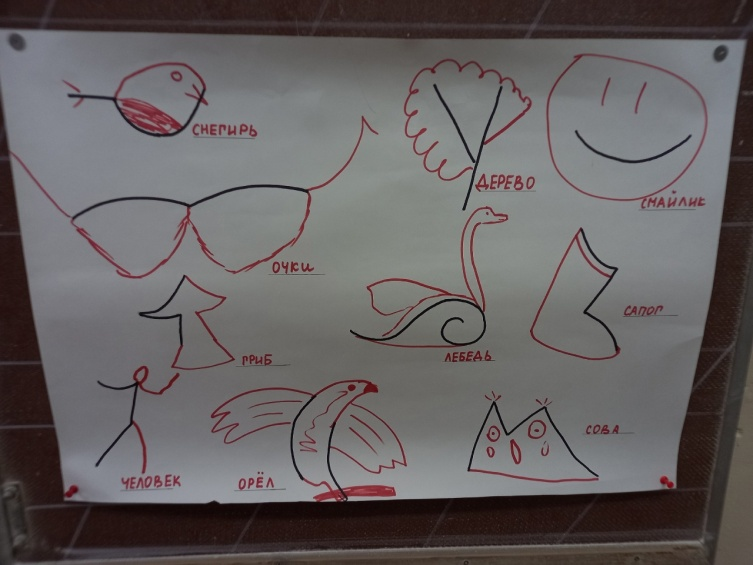 СНЕГИРЬ
ДЕРЕВО
СМАЙЛИК
ОЧКИ
ГРИБ
ЛЕБЕДЬ
САПОГ
ЧЕЛОВЕК
ОРЁЛ
СОВА